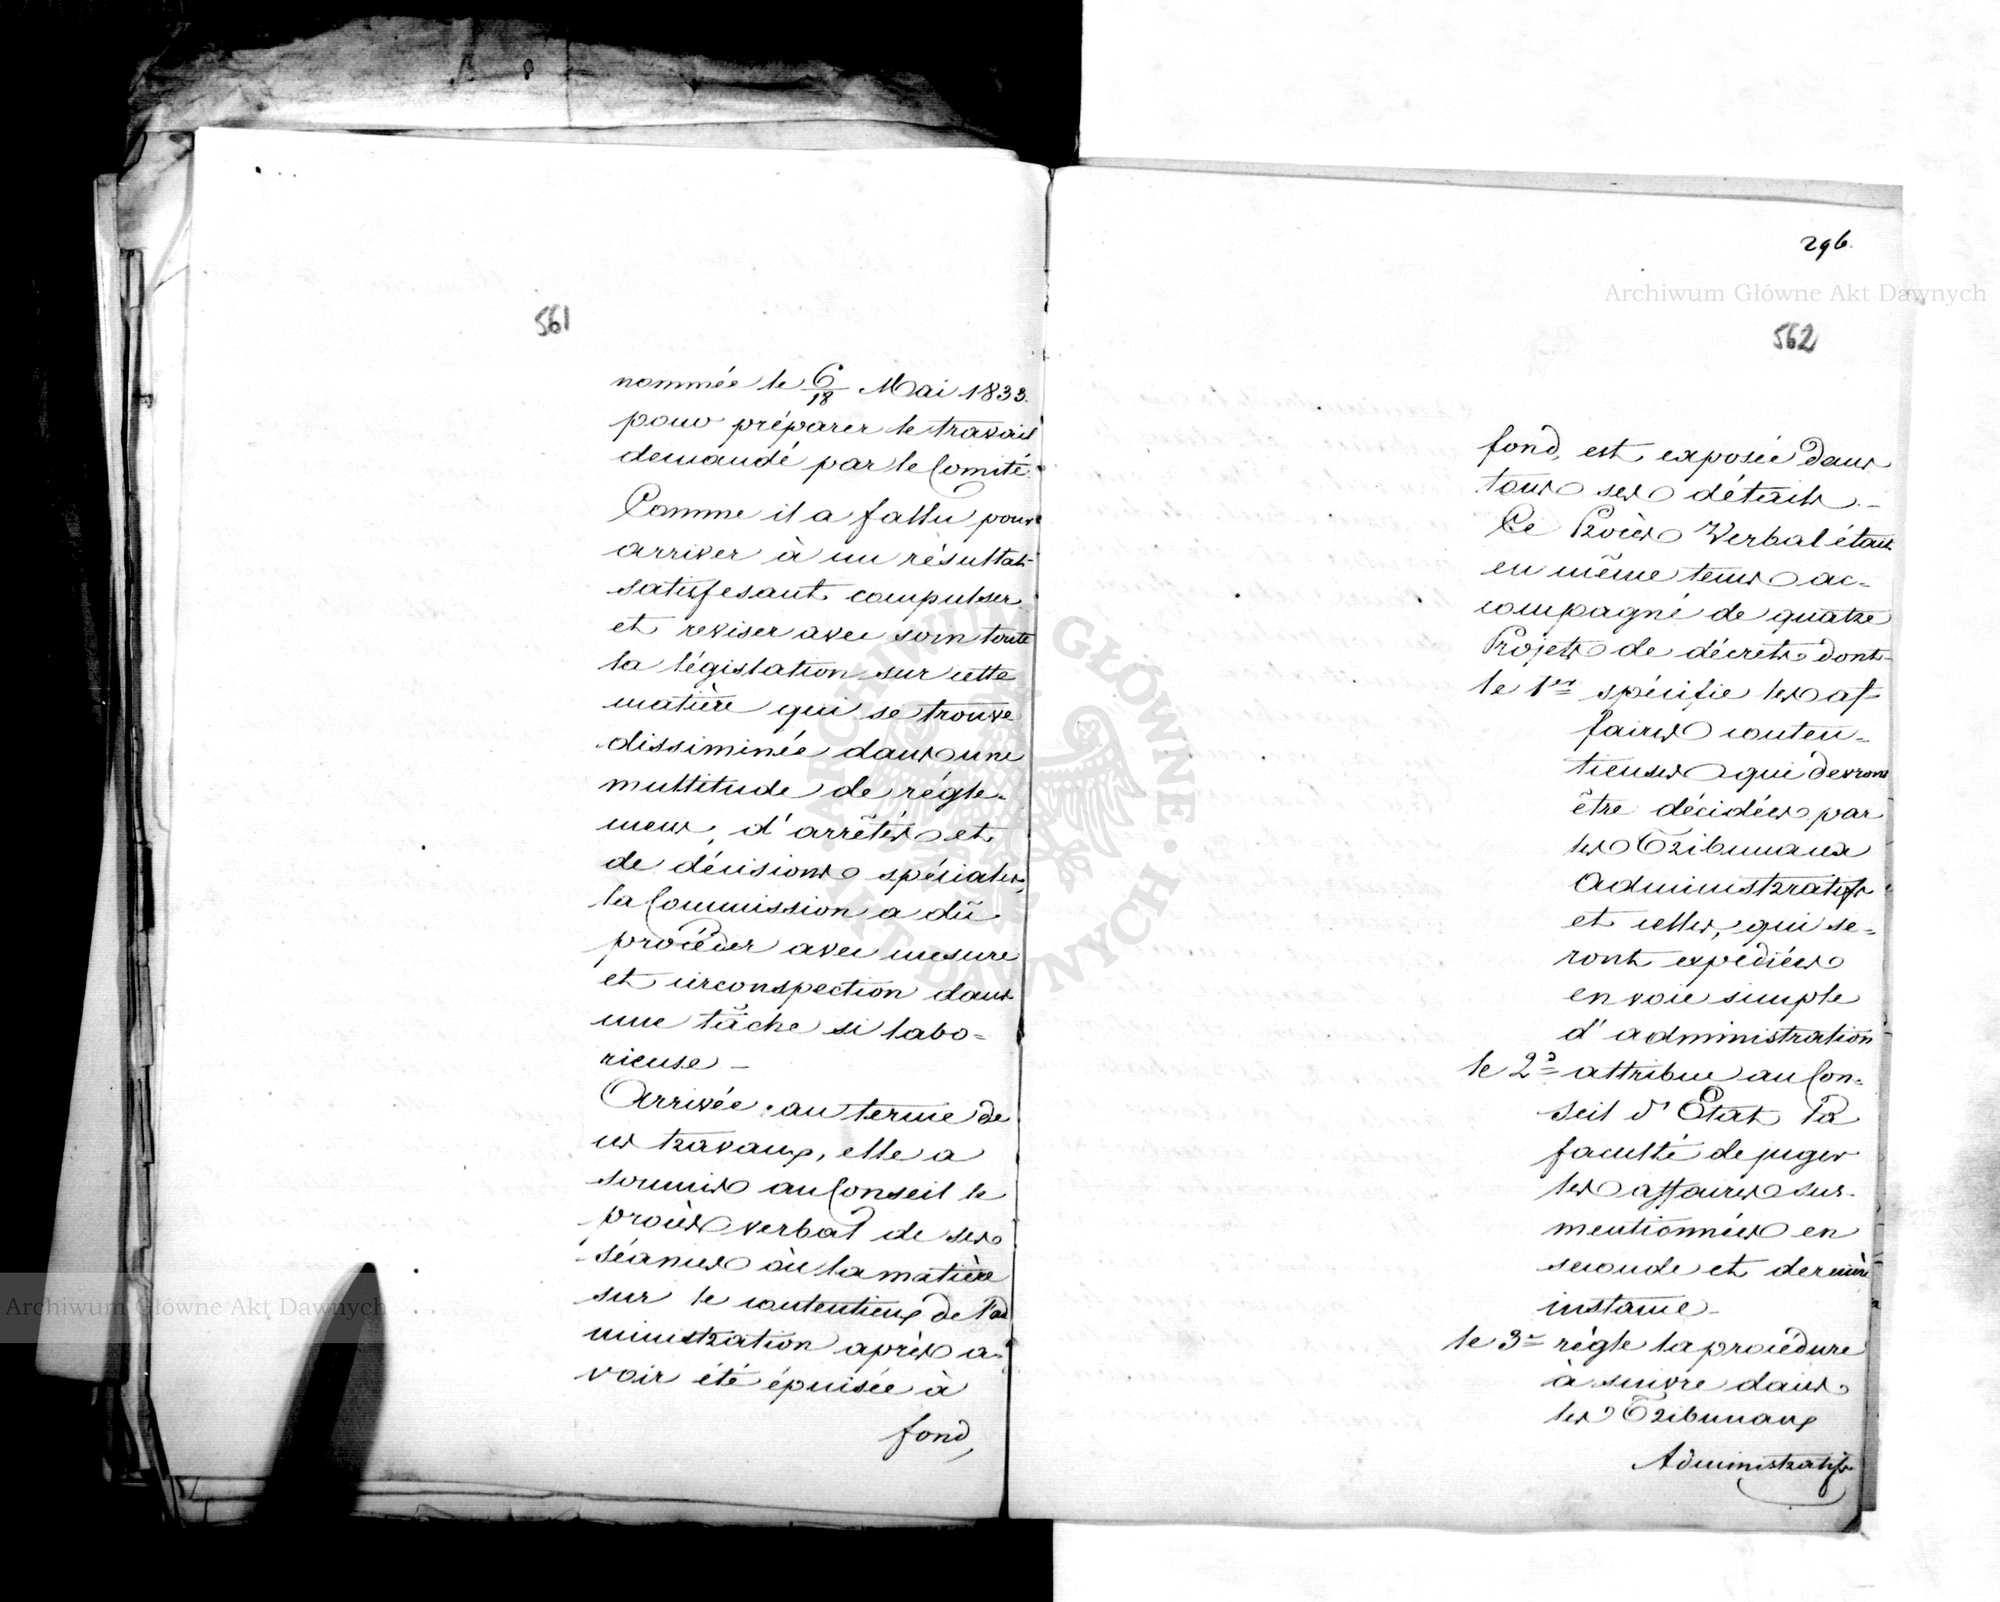 561
nommée le 6/18 Mai 1833.
pour préparer le travail
demandé par le Comité.
Comme il a fallu pour
arriver à un résultat
satisfesant compulser
et reviser avec soin toute
la législation sur cette
matière qui se trouve
dissiminée dans une
multitude de régle-
mens, d'arrêtés et
de décisions spéciales,
la Commission a dû
procéder avec mesure
et circonspection dans
une tâche si labo-
rieuse –
Arrivée au terme de
ces travaux, elle a
soumis au Conseil le
procès verbal de ses
séances où la matière
sur le contentieux de l'ad
ministration après a-
voir été épuisée à
fond,
296.
Archiwum Główne Akt Dawnych
562
fond, est exposée dans
tous ses détails. –
Ce Procès Verbal était
en même tems ac-
compagné de quatre
Projets de décrets dont
le 1er spécifie les af-
faires conten-
tieuses qui devront
être décidées par
les Tribunaux
Administratifs
et celles, qui se-
ront expédiées
en voie simple
d'administration
le 2d attribue au Con-
seil d'Etat la
faculté de juger
les affaires sus-
mentionnées en
seconde et dernière
instance –
le 3e règle la procédure
à suivre dans
les Tribunaux
Administratifs
Archiwum Główne Akt Dawnych
ARCHIWUM GŁÓWNE · AKT DAWNYCH ·